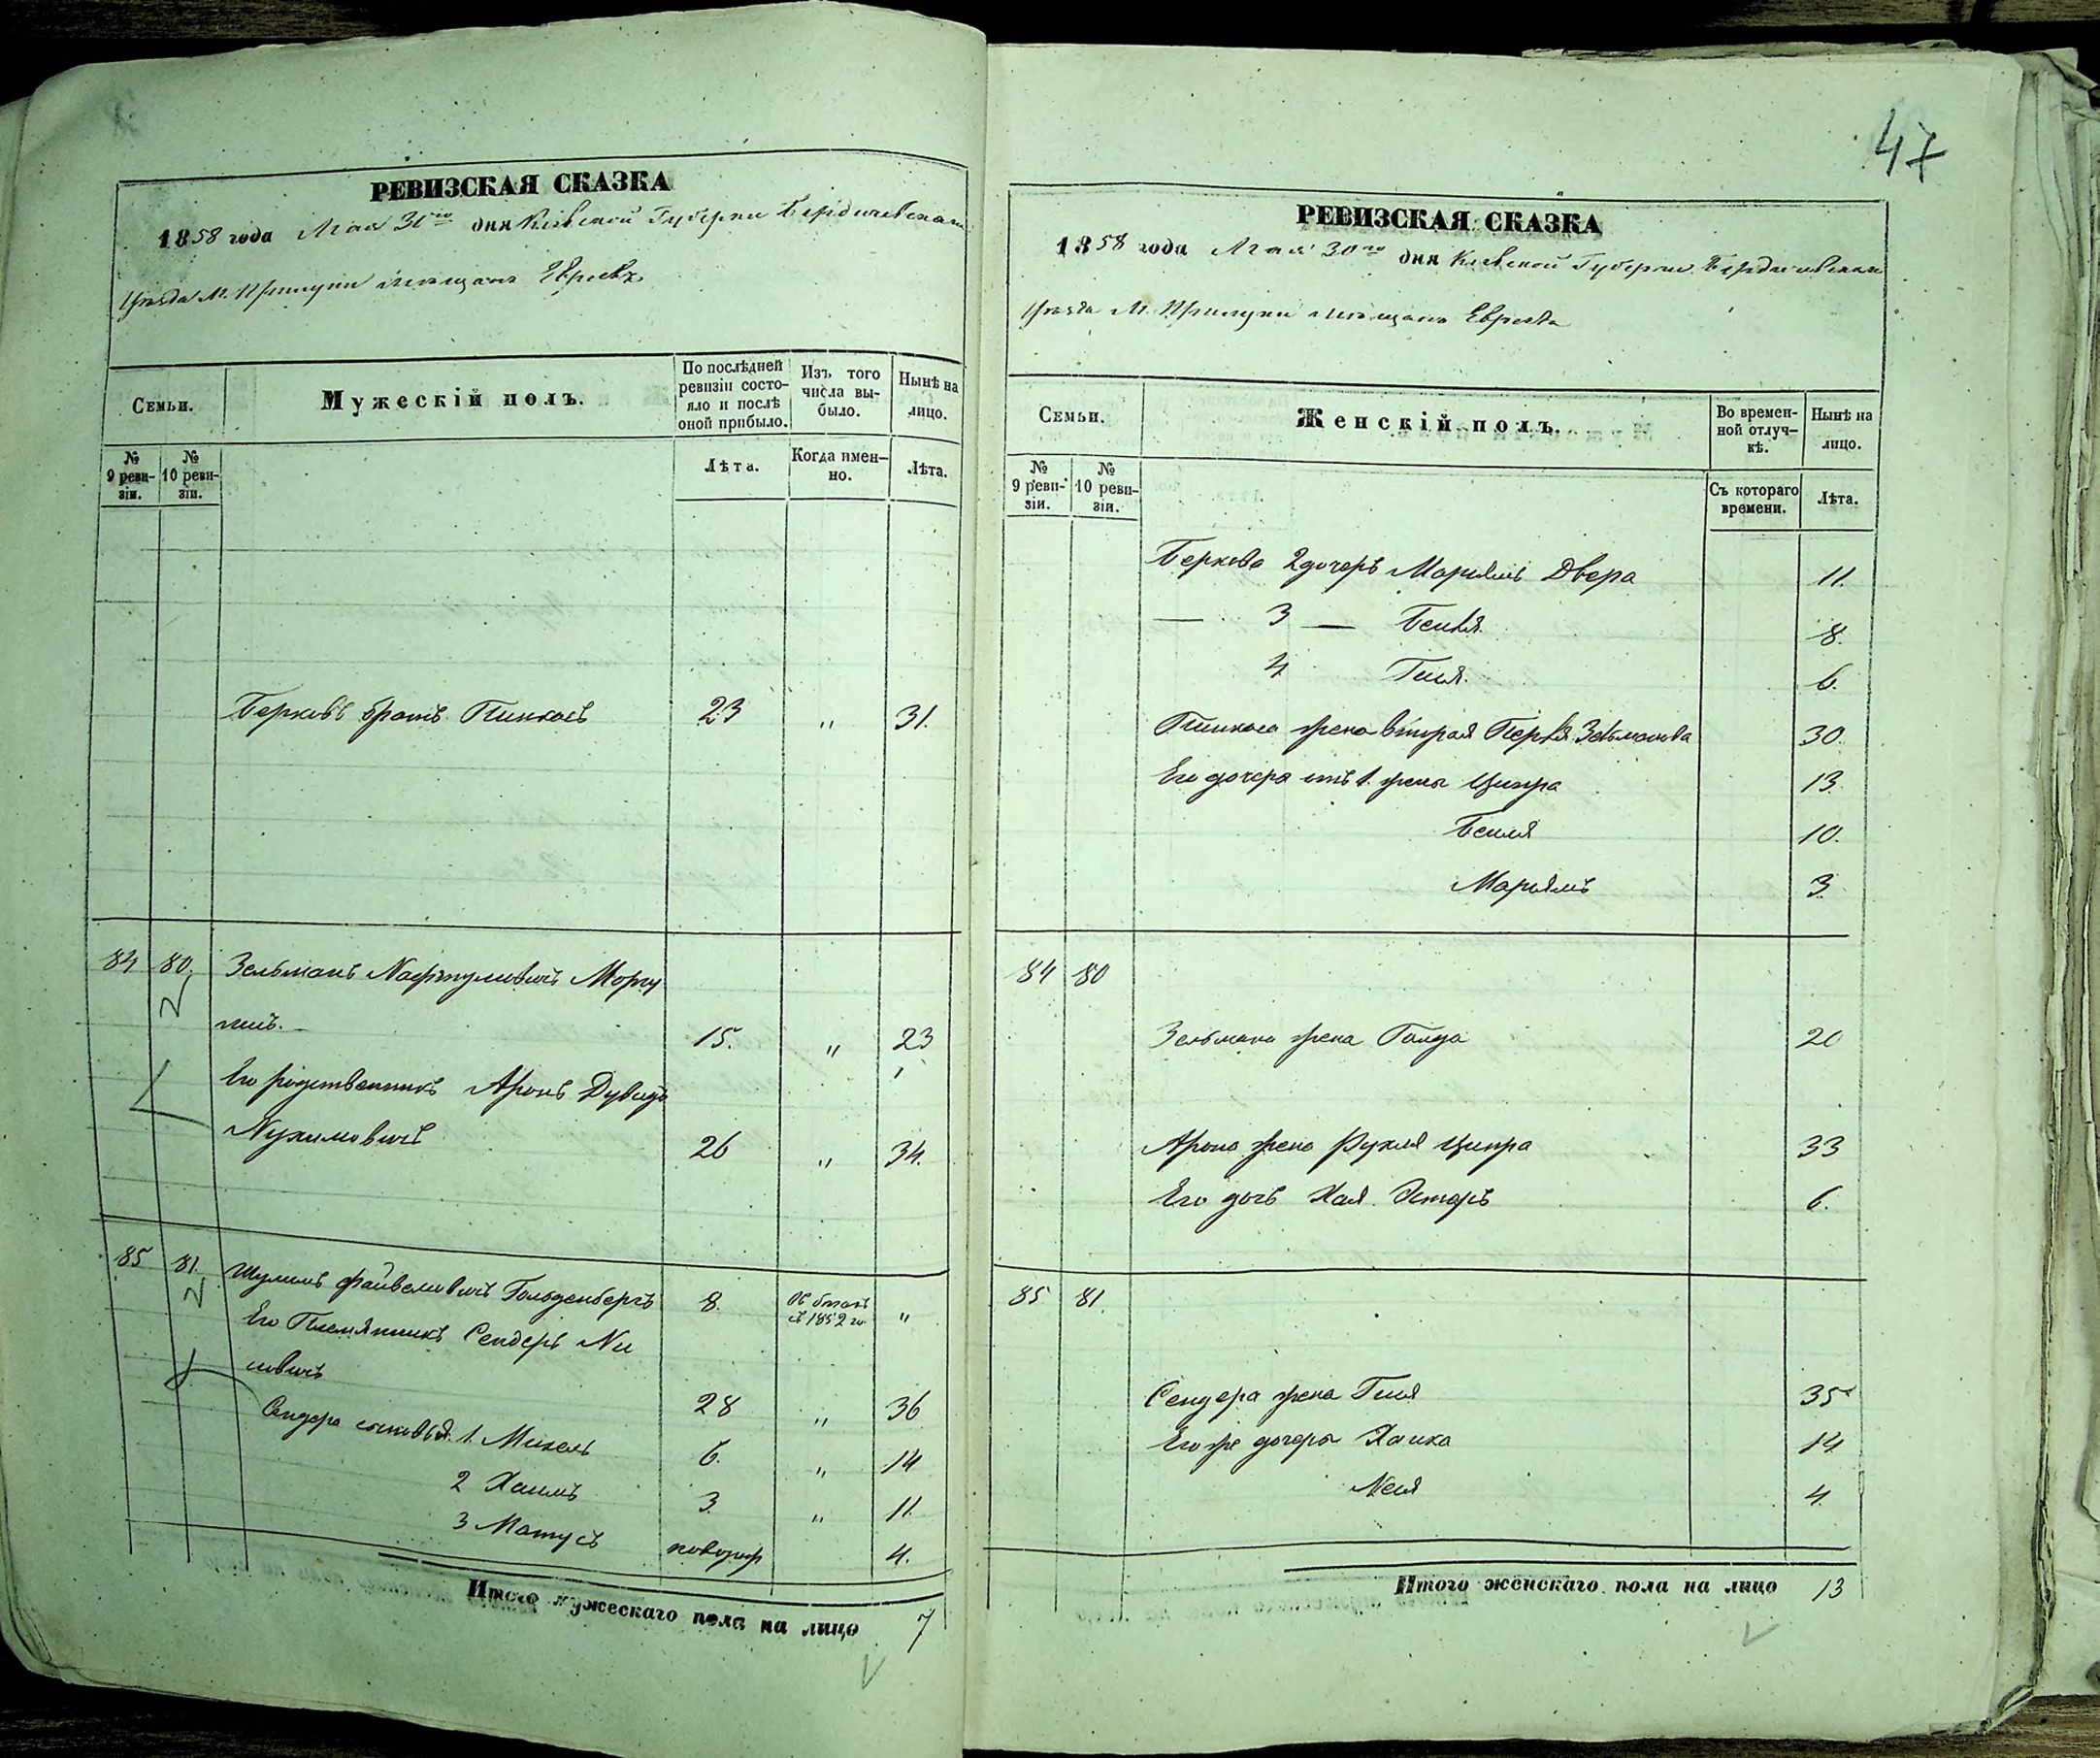 47
РЕВИЗСКАЯ СКАЗКА
1858 года Мая 30го дня Киевской Губернии Бердичевскаго
Уѣзда М. Прилуки мѣщанъ Евреевъ
Семьи.
Мужескій полъ.
По послѣдней ревизіи состояло и послѣ оной прибыло.
Изъ того числа выбыло.
Нынѣ на лицо.
№ 9 ревизіи.
№ 10 ревизіи.
Лѣта.
Когда именно.
Лѣта.
Берковъ братъ Пинкасъ 23 " 31.
84 80. Зельманъ Нафтуловичъ Моргу
лисъ. 15. " 23
Его родственникъ Аронъ Дувидъ
Нухимовичъ 26 " 34.
85 81. Шулимъ Файвеловичъ Гольденбергъ 8. съ 1852 го "
Его Племянникъ Сендеръ Ну
28 " 36
Сендера сыновья. 1. Михель 6. " 14
2 Хаимъ 3. " 11.
3 Матусъ новорож 4.
Итого мужескаго пола на лицо 7
РЕВИЗСКАЯ СКАЗКА
1858 года Мая 30го дня Киевской Губернии Бердичевскаго
Уѣзда М. Прилуки мѣщанъ Евреевъ
Семьи.
Женскій полъ.
Во временной отлучкѣ.
Нынѣ на лицо.
№ 9 ревизіи.
№ 10 ревизіи.
Съ котораго времени.
Лѣта.
Беркова 2 дочерь Марьямъ Двера 11.
— 3 — Бейля. 8.
4 Гитля. 6.
Пинкаса жена вторая Перля Зельманова 30.
Его дочери отъ 1. жены Ципра 13.
Бейля 10.
Марьямъ 3.
84 80
Зельмана жена Голда 20
Арона жена Рухля Ципра 33
Его дочь Хая Эстеръ 6.
85 81.
Сендера жена Гитля 35
Его же дочери Ханка 14
4.
Итого женскаго пола на лицо 13